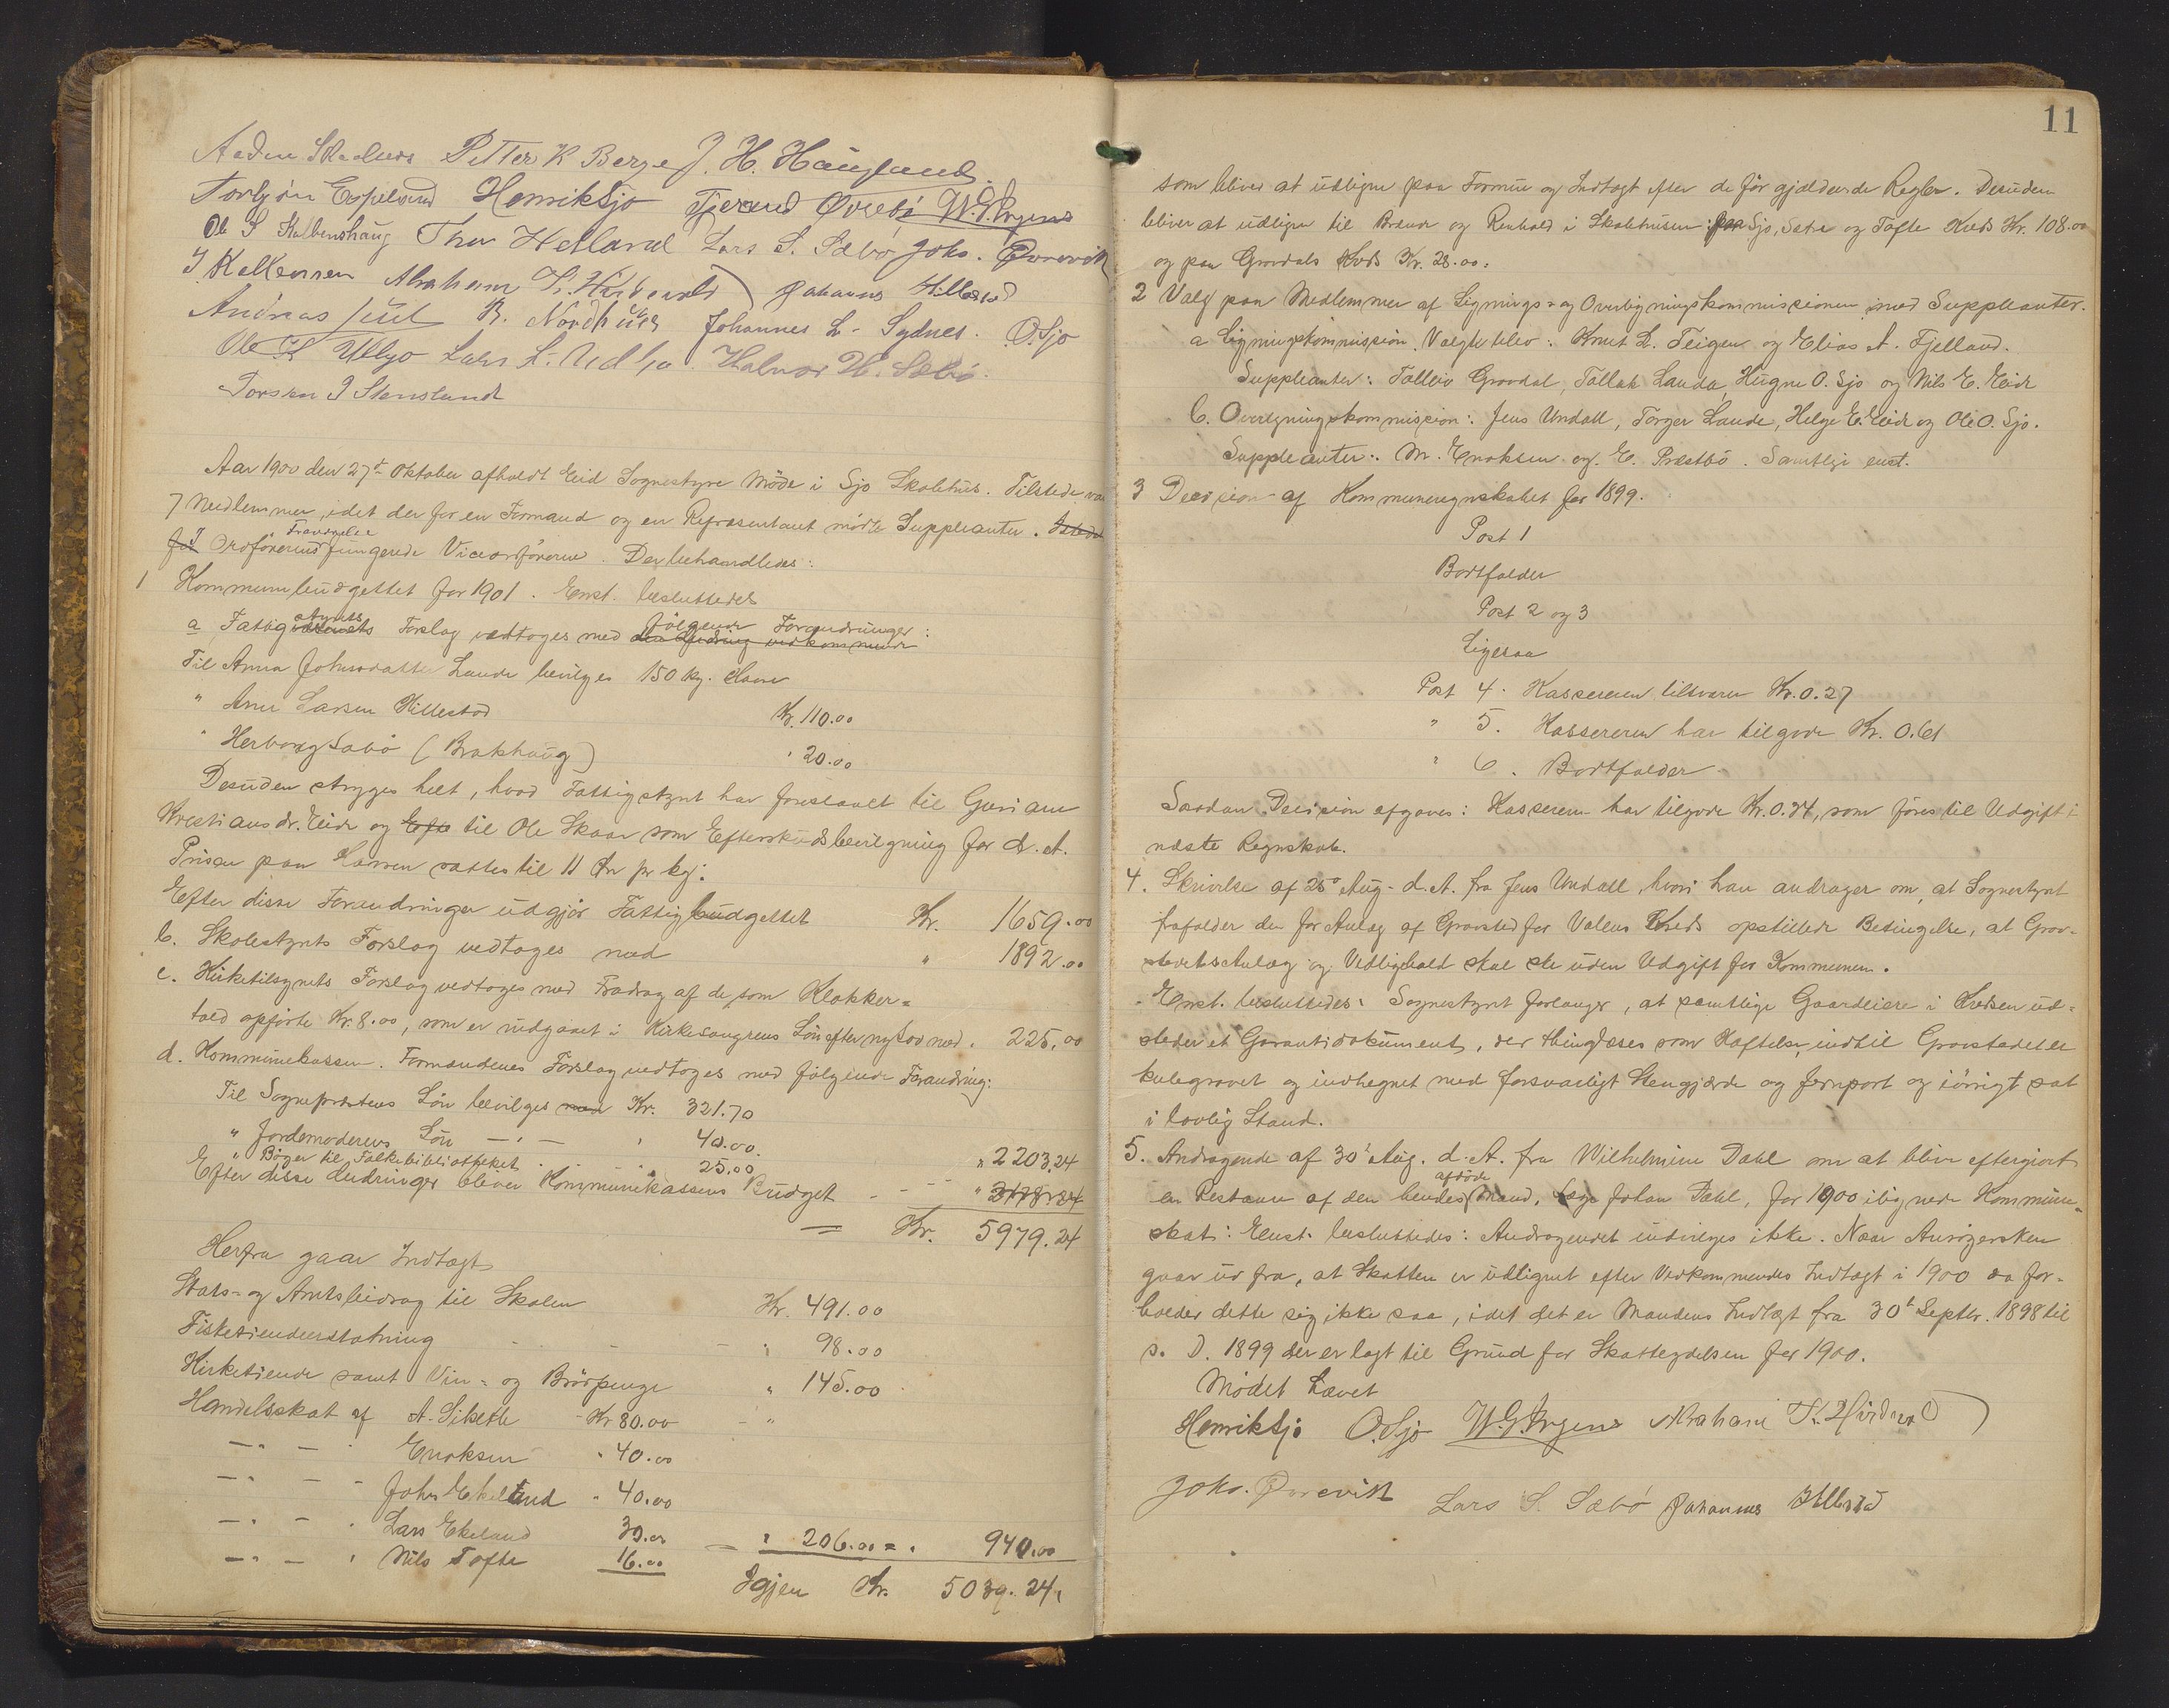 Petter K Berge J. H. Haugland.
Torbjön Espeland Henrik Sjo Tjerand Övrebö W. G.
Ole S Kalbenshaug Thor Helland Lars S. Sæbö Johs.
Abraham Johannes Hillestad
Andreas Juul B. Nordhuus Johannes L. Sydnes. O. Sjo
Ole K Utbjo Lars L. Udbjo. Halvor H. Sæbö.
J Stensland
Aar 1900 den 27de Oktober afholdt Eid Sognestyre Möde i Sjo Skolehus. Tilstede var
7 Medlemmer, idet der for en Formand og en Repræsentant mödte Suppleanter. Istedet
for I Ordförerens Fraværelse fungerede Viceordföreren. Der behandledes:
1 Kommunebudgettet for 1901. Enst. besluttedes
a Fattigstyrets Forslag vedtoges med følgende Forandringer:
Til Anna Johnsdatter Lunde bevilges 150 kg. Havre
" Arne Larsen Hillestad Kr. 110.00
" Herborg Sæbö (Brakhaug) " 20.00
Desuden stryges helt, hvad Fattigstyret har foreslaaet til Guri Ane
Kristiansdr. Eide og Efte til Ole Skaar som Efterskudsbevilgning for d. A.
Prisen paa Havren sættes til 11 Öre pr kg.
Efter disse Forandringer udgjör Fattigbudgettet Kr. 1659.00
b. Skolestyrets Forslag vedtoges med " 1892.00
c. Kirketilsynets Forslag vedtoges med Fradrag af de som Klokker=
told opförte Kr. 8.00, som er indgaaet i Kirkesangerens Lön efter ny Lov med. 225,00
d. Kommunekassen. Formandenes Forslag vedtoges med fölgende Forandring:
Til Sogneprestens Lön bevilges med Kr. 321.70
" Jordemoderens Lön — " — " 40.00.
" Böger til Folkebibliotheket . . . . 25,00 " 2203,24
Efter disse Ændringer bliver Kommunekassens Budget - - - " 3178.24
— Kr. 5979.24
Herfra gaar Indtægt
Stats- og Amtsbidrag til Skolen Kr. 491.00
Fisketiendeerstatning - - " 98.00
Kirketiende samt Vin= og Brödpenge " 145.00
Handelsskat af A. Kr 80.00 - "
— " — " Enoksen " 40.00
— " — " John Ekeland " 40.00
— " — " Lars Ekeland 30.00
— " — " Nils Tofte 16.00 — " 206.00 = " 940.00
Igjen Kr. 5039.24.
11
som bliver at udligne paa Formue og Indtægt efter de för gjældende Regler. Desuden
bliver at udligne til Brænde og Renhold i Skolehusene: paa Sjo, Sætre og Tofte Kreds Kr. 108.00
og paa Grovdals Kreds Kr. 28.00.
2 Valg paa Medlemmer af Ligning- og Overligningskommissionen med Suppleanter.
a Ligningskommission. Valgte blev: Knut L. Teigen og Elias A. Fjelland.
Suppleanter: Tolleiv Grovdal, Tollak Lunda, Hugne O. Sjo og Nils E. Eide
b. Overligningskommission: Jens Undall, Torger Lunde, Helge E. Eide og Ole O. Sjo.
Suppleanter: M. Enoksen og E. Præstbö. Samtlige enst.
3 Decision af Kommuneregnskabet for 1899.
Post 1
Bortfalder
Post 2 og 3
Ligesaa
Post 4. Kassereren tilsvarer Kr. 0.27
" 5. Kassereren har tilgode Kr. 0.61
" 6. Bortfalder
Saadan Decision afgaves: Kassereren har tilgode Kr. 0.34, som föres til Udgift i
næste Regnskab.
4. Skrivelse af 25de Aug. d. A. fra Jens Undall, hvori han andrager om, at Sognestyret
frafalder den for Anlæg af Gravsted for Vallens Kreds opstillede Betingelse, at Grav-
stedets Anlæg og Vedligehold skal ske uden Udgift for Kommunen.
Enst. besluttedes: Sognestyret forlanger, at samtlige Gaardeiere i Kredsen ud=
steder et Garantidokument, der thinglæses som Hæftelse, indtil Gravstedet er
kulegravet og indhegnet med forsvarligt Stengjærde og Jernport og iövrigt sat
i lovlig Stand.
5. Andragende af 30te Aug. d. A. fra Wilhelmine Dahl om at blive eftergivet
en Restance af den hendes afdöde Mand, Læge Johan Dahl, for 1900 ilignede Kommune=
skat: Enst. besluttedes: Andragendet indvilges ikke. Naar Ansögersken
gaar ud fra, at Skatten er udlignet efter Vedkommendes Indtægt i 1900 da for=
holder dette sig ikke saa, idet det er Mandens Indtægt fra 30te Septbr. 1898 til
s. D. 1899 der er lagt til Grund for Skatteydelsen for 1900.
Mödet hævet
Henrik Sjo O. Sjo W. G. Abraham
Johs. Lars S. Sæbö Johannes Hillestad